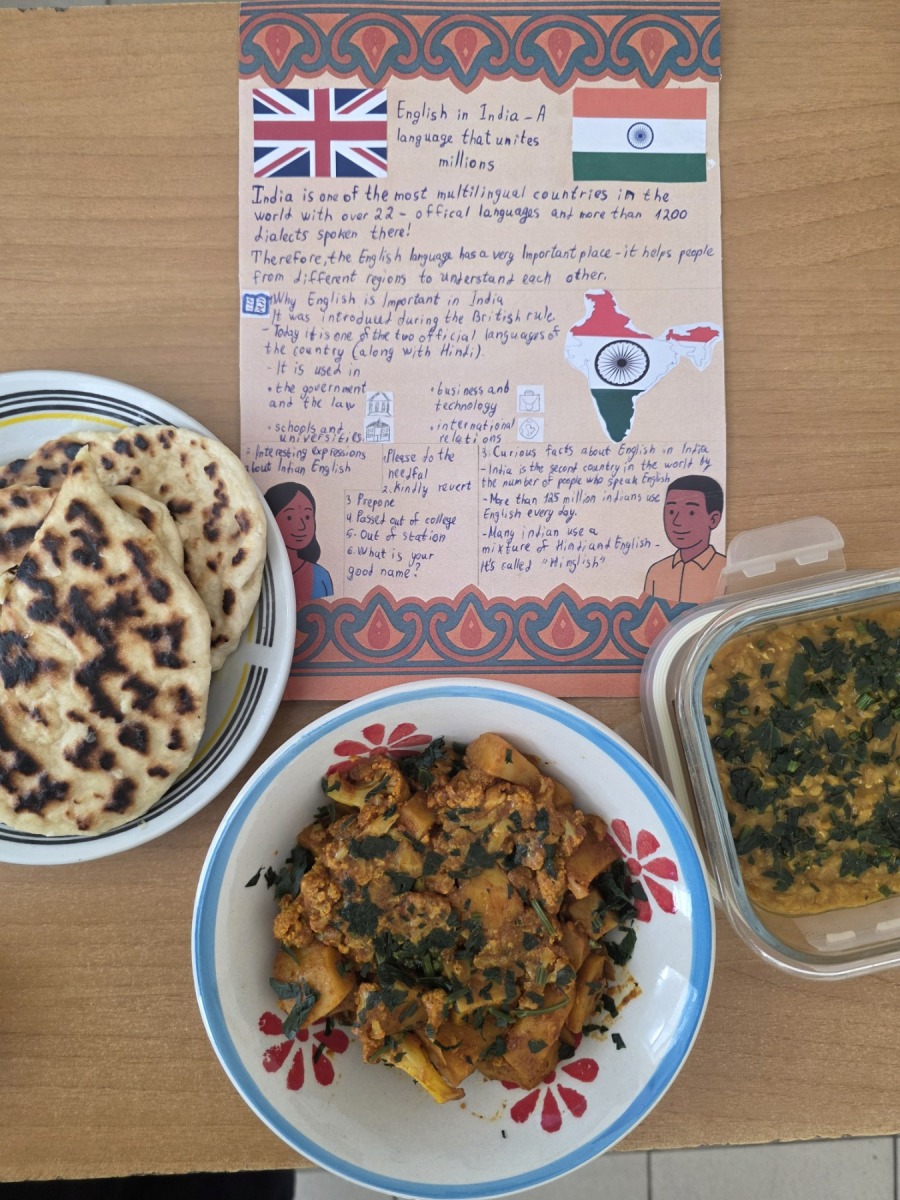 English in India - A
language that unites
millions
India is one of the most multilingual countries in the
world with over 22 - offical languages and more than 1200
dialects spoken there!
Therefore, the English language has a very Important place - it helps people
from different regions to understand each other.
Why English is Important in India
It was introduced during the British rule.
- Today it is one of the two official languages of
the country (along with Hindi).
- It is used in
• the government
and the law
• schools and
universities
• business and
technology
• international
relations
Interesting expressions
about Indian English
1. Please do the
needful
2. Kindly revert
3 Prepone
4 Passed out of college
5. Out of station
6. What is your
good name?
3. Curious facts about English in India
- India is the second country in the world by
the number of people who speak English
- More than 125 million indians use
English every day.
- Many indian use a
mixture of Hindi and English -
It's called "Hinglish"